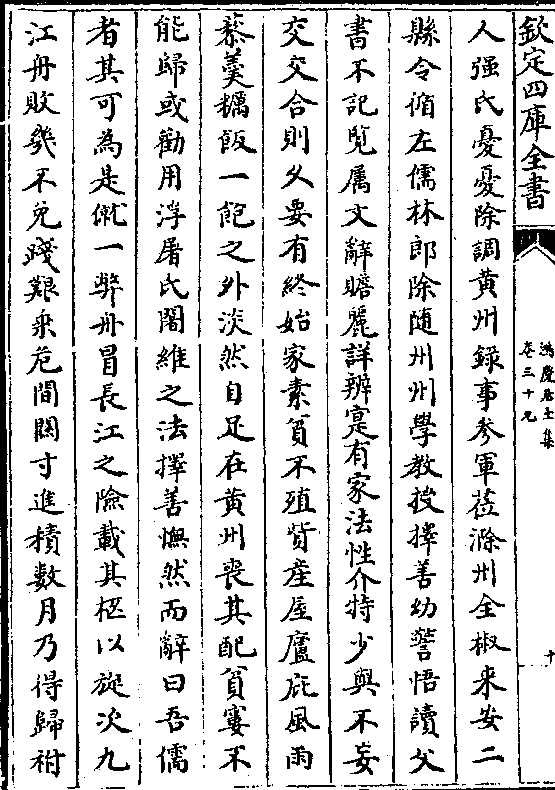 欽定四庫全書
鴻慶居士集
卷三十九
十
人强氏憂憂除調黄州録事參軍莅滁州全椒來安二
縣令循左儒林郎除随州州學教授擇善幼警悟讀父
書不記覧属文辭贍麗詳辨寔有家法性介特少與不妄
交交合則久要有終始家素貧不殖貲産屋廬庇風雨
藜羮糲飯一飽之外淡然自足在黄州喪其配貧窶不
能歸或勸用浮屠氏闍維之法擇善憮然而辭曰吾儒
者其可為是僦一弊舟冒長江之險載其柩以旋次九
江舟敗㡬不免踐艱乗危間關寸進積數月乃得歸祔